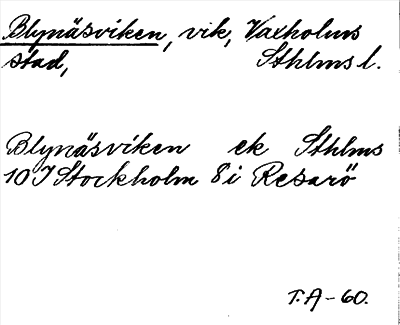 Blynäsviken, vik, Vaxholms
stad, Sthlms l.
Blynäsviken ek Sthlms
10 I Stockholm 8 i Resarö
T.A-60.